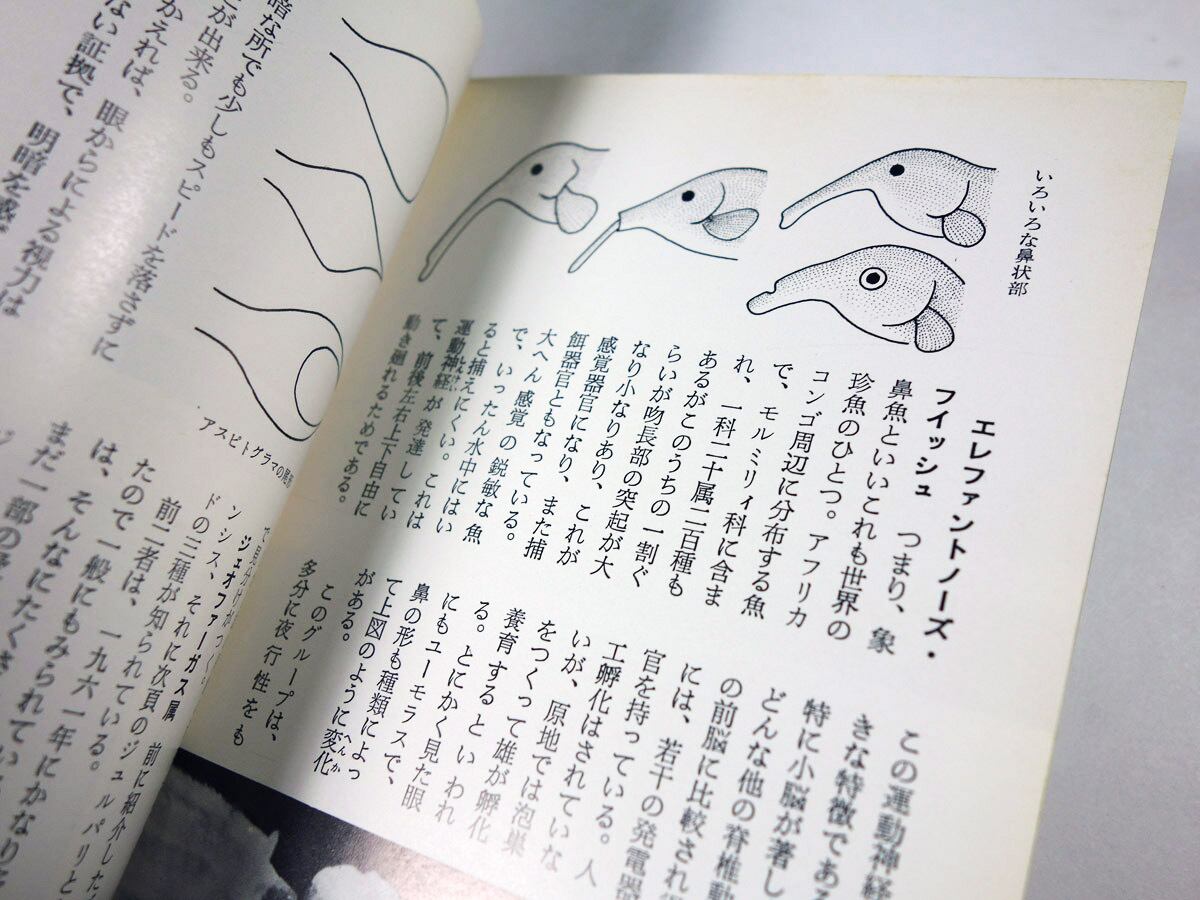 いろいろな鼻状部
エレファントノーズ・
フイッシュ つまり、象
鼻魚といいこれも世界の
珍魚のひとつ。アフリカ
コンゴ周辺に分布する魚
で、モルミリィ科に含ま
れ、一科二十属二百種も
あるがこのうちの一割ぐ
らいが吻長部の突起が大
なり小なりあり、これが
感覚器官になり、また捕
餌器官ともなっている。
大へん感覚の鋭敏な魚
で、いったん水中にはい
ると捕えにくい。これは
運動神経が発達してい
て、前後左右上下自由に
動き廻れるためである。
この運動神経
きな特徴である
特に小脳が著し
どんな他の脊椎動
の前脳に比較され
には、若干の発電器
官を持っている。人
工孵化はされていな
いが、原地では泡巣
をつくって雄が孵化
養育するといわれ
る。とにかく見た眼
にもユーモラスで、
鼻の形も種類によっ
て上図のように変化
がある。
このグループは、
多分に夜行性をも
暗な所でも少しもスピードを落さずに
とが出来る。
かえれば、眼からによる視力は
ない証拠で、明暗を感
アスピトグラマの
ジェオファーガス属 前に紹介した
ンシス、それに次頁のジュルパリと
ドの三種が知られている。
前二者は、一九六一年にかなり
たので一般にもみられてい
は、そんなにたくさ
まだ一部の